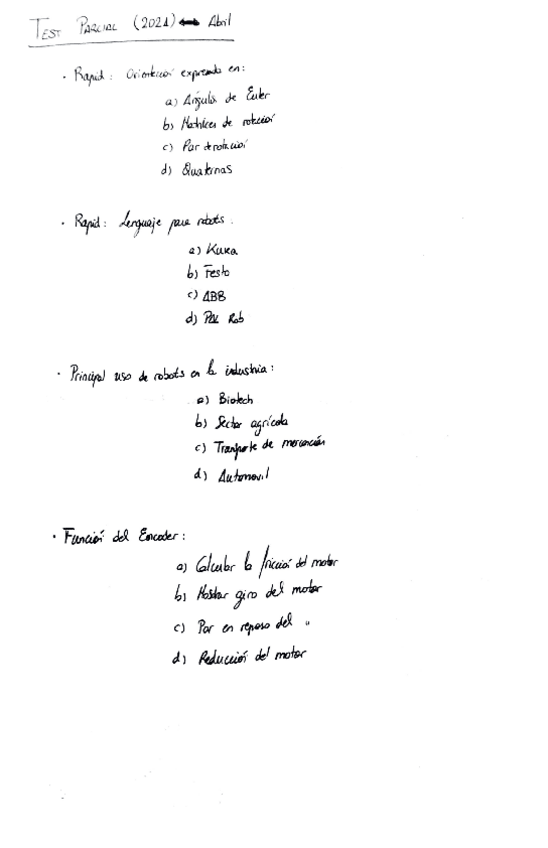 TEST PARCIAL (2021) ↔ Abril
· Rapid: Orientación expresada en:
a) Ángulos de Euler
b) Matrices de rotación
c) Par de rotación
d) Quaternas
· Rapid: Lenguaje para robots.
a) Kuka
b) Festo
c) ABB
d) PAL Rob
· Principal uso de robots en la industria:
a) Biotech
b) Sector agrícola
c) Transporte de mercancías
d) Automovil
· Función del Encoder:
a) Calcular la fricción del motor
b) Mostrar giro del motor
c) Par en reposo del "
d) Reducción del motor